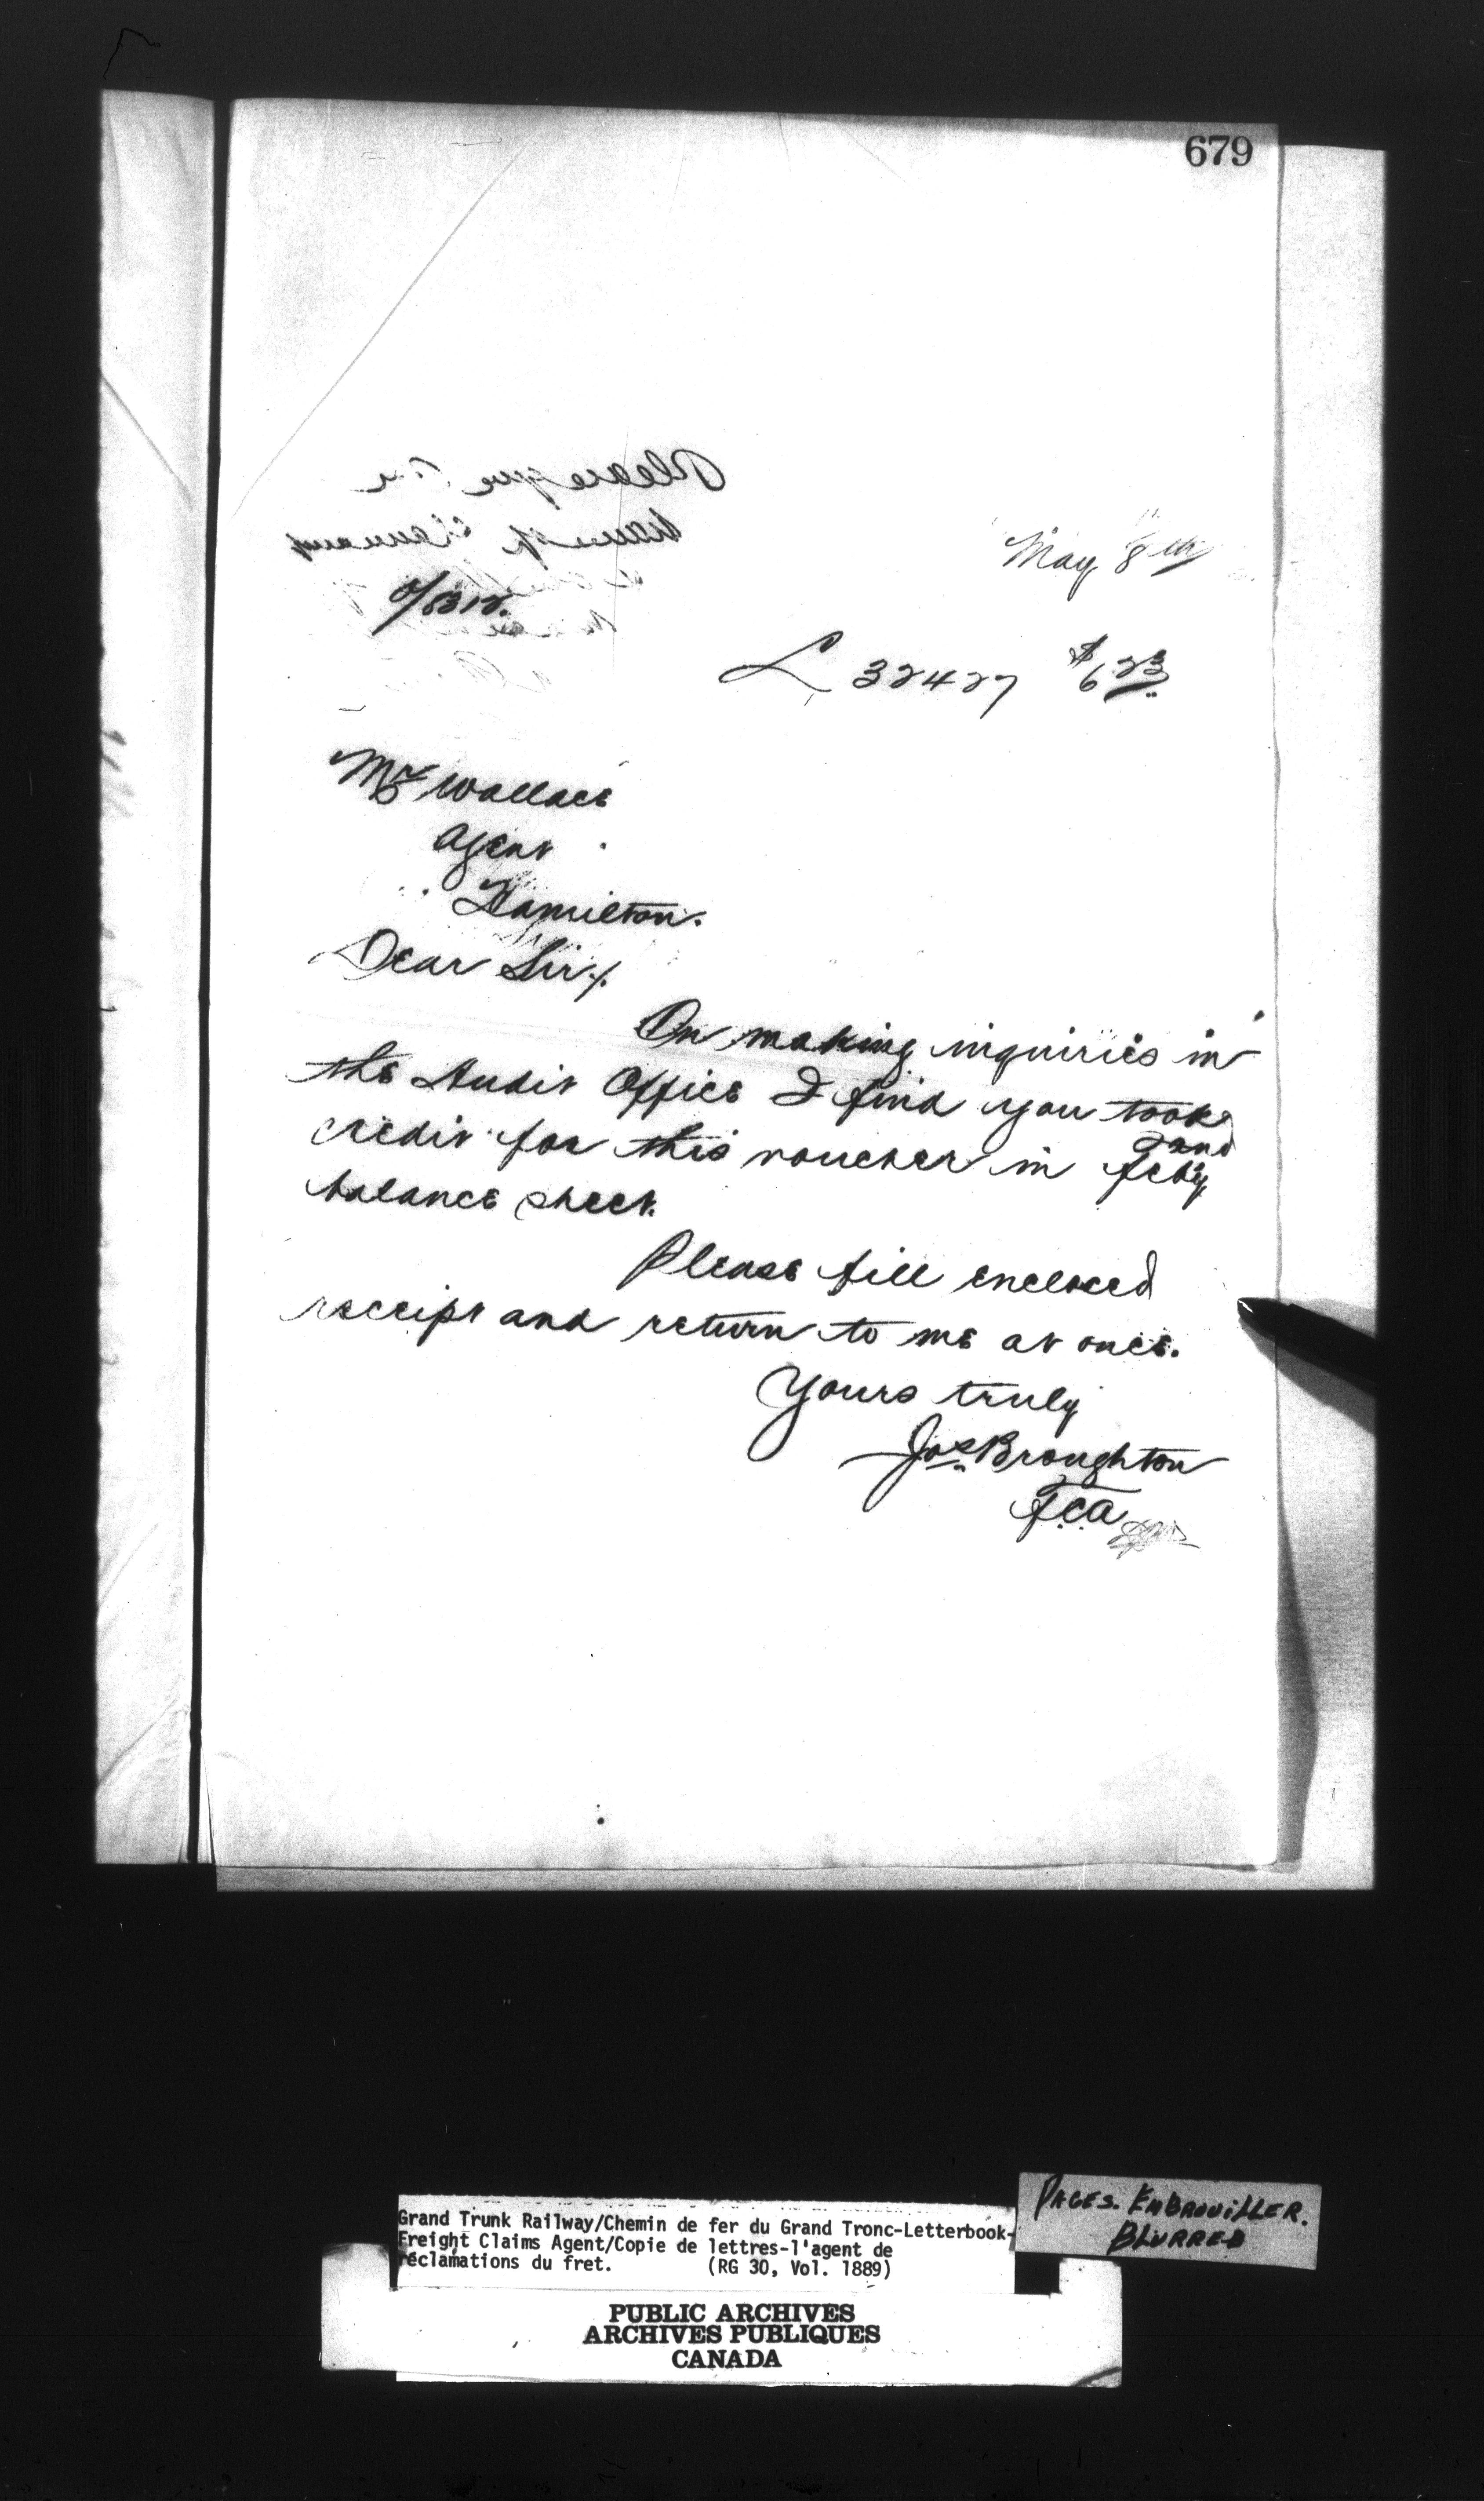 679
May 8th
O/8312.
L 32427 $6.23
Mr Wallace
Agent
Hamilton.
Dear Sir/.
On making inquiries in
the Audit Office I find you took
credit for this voucher in 2nd Feby
balance sheet.
Please fill enclosed
receipt and return to me at once.
Yours truly
Jos Broughton
F.C.A
Grand Trunk Railway/Chemin de fer du Grand Tronc-Letterbook-
Freight Claims Agent/Copie de lettres-l'agent de
réclamations du fret. (RG 30, Vol. 1889)
PAGES. EMBROUILLER.
BLURRED
PUBLIC ARCHIVES
ARCHIVES PUBLIQUES
CANADA